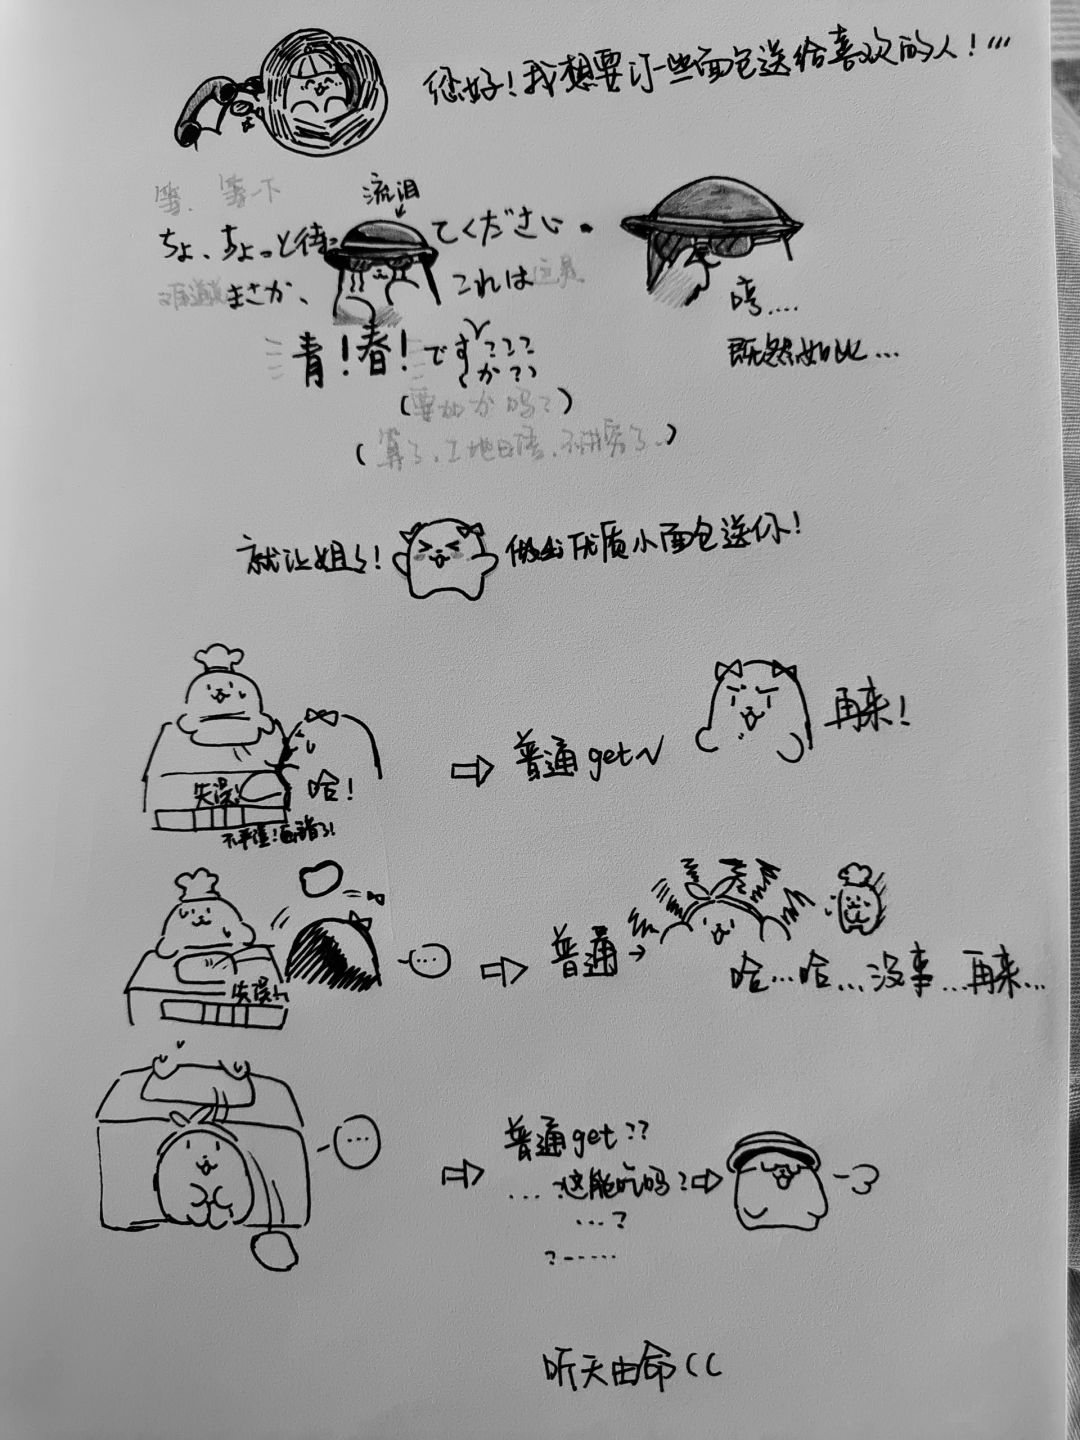 您好！我想要订一些面包送给喜欢的人！...
等、等一下
流泪
ちょ、ちょっと待ってください。
难道说
まさか、これは
这是
青！春！です
か??
(要加か吗?)
(算了、工地日语、不讲究了..)
哼....
既然如此...
就让姐了！做出优质小面包送你！
失误!
哈！
普通get~
再来！
失误!
...
普通→
哈...哈...没事...再来...
...
普通get??
...这能吃吗?
...?
?......
听天由命((